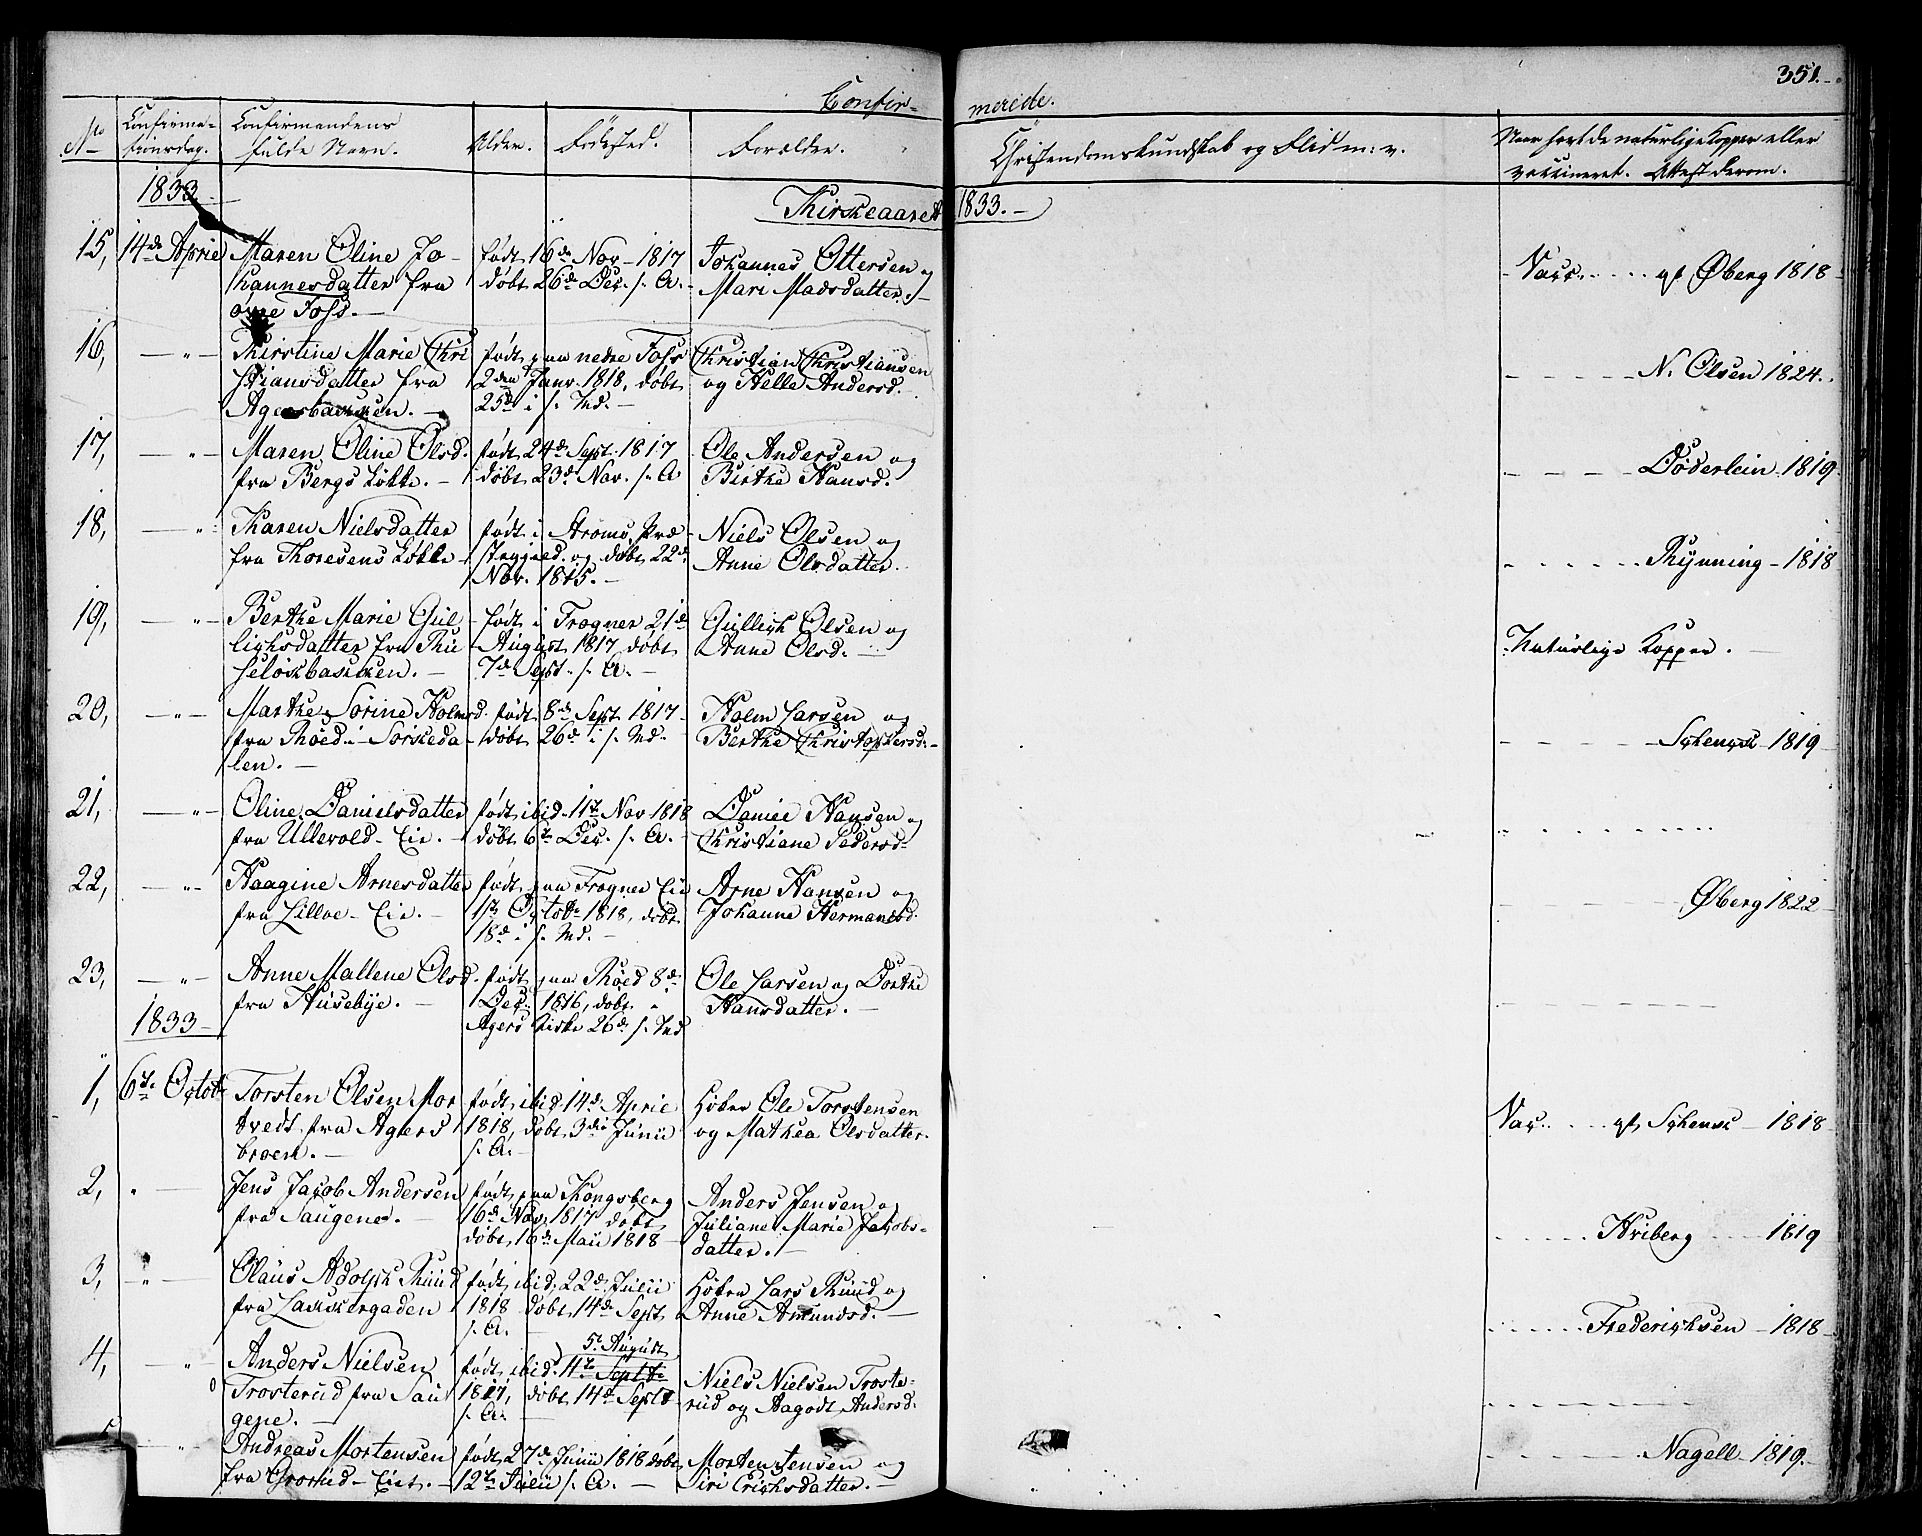 351.
Confir=
merede.
No
Confirma-
tionsdag.
Confirmandens
fulde Navn.
Alder.
Fødested.
Forældre.
Christendomskundskab og Flid m: v.
Naar havt de naturlige Kopper eller
vaccineret. Attest derom.
1833.
Kirkeaaret 1833.-
15, 14de April Maren Oline Jo-
hannesdatter fra
øvre Foss.-
født 16de Nov- 1817
døbt 26d Dec. s. A.-
Johannes Ottersen og
Mari Madsdatter.-
Vacc. af Øberg 1818-
16, -"- Kirstine Marie Chri
stiansdatter fra
Agersbakken.-
født paa nedre Foss
2den Janr. 1818, døbt
25d i s. Md.-
Christian Christiansen
og Helle Andersd.
N. Olsen 1824.
17, -"- Maren Oline Olsd.
fra Bergs Løkke.-
født 24d Sept. 1817
døbt 23d Nov. s. A
Ole Andersen og
Birthe Hansd.
Døderlein 1819
18, -"- Karen Nielsdatter
fra Thoresens Løkke
født i Strøms Præ
stegjæld. og døbt 22d
Nov. 1815.-
Niels Olsen og
Anne Olsdatter.
Thynning - 1818
19, -"- Berthe Marie Gul
lichsdatter fra Ru
seløkbakken.-
født i Frogner 21d
August 1817 døbt
7d Sept. s. A.-
Gullich Olsen og
Anne Olsd.-
Naturlige Kopper.
20, -"- Marthe Sørine Holmsd.
fra Røed i Sørkeda-
len.-
født 8d Sept 1817
døbt 26d i s. Md.
Holm Larsen og
Berthe Christophersd.-
Schenck 1819
21, -"- Oline Danielsdatter
fra Ullevold- Eie.-
født ibid. 11t Nov 1818
døbt 6t Dec. s. A.-
Daniel Hansen og
Christiane Pedersd-
22, -"- Haagine Arnesdatter
fra Lilloe- Eie.-
født paa Frogner Eie
1st Octob. 1818, døbt
18d i s. Md.-
Arne Hansen og
Johanne Hermansd.
Øberg 1822
23, -"- Anne Mallene Olsd.
fra Husebye.-
født paa Røed 8d
Dec. 1816, døbt i
Agers Kirke 26d s. Md
Ole Larsen og Dorthe
Hansdatter.-
1833-
1, 6te Octob. Torsten Olsen Mor
tvedt fra Agers
broen.-
født ibid. 14d April
1818, døbt 3die Junii
s. A.-
Høker Ole Torstensen
og Mathea Olsdatter.
Vac. af Schenck 1818
2, Jens Jacob Andersen
fra Saugene.-
født paa Kongsberg
16d Nov. 1817 døbt
døbt 16d Maii 1818-
Anders Jensen og
Juliane Marie Jacobs-
datter.-
1819
3, -"- Olaus Adolph Ruud
fra Lakkergaden
født ibid. 22d Julii
1818 døbt 14d Sept
s. A.
Høker Lars Ruud og
Anne Amundsd.-
Frederichsen - 1818
4, -"- Anders Nielsen
Trosterud fra Sau
gene.-
5t August
født ibid. 11t Septb.
1817, døbt 14d Septb
s. A.-
Niels Nielsen Troste-
rud og Aagodt Andersd.
5 -"- Andreas Mortensen
fra Grorud- Eie.-
født 27d Junii 1818 døbt
12t Julii s. A.-
Morten Jensen og
Siri Erichsdatter.-
Nagell 1819.